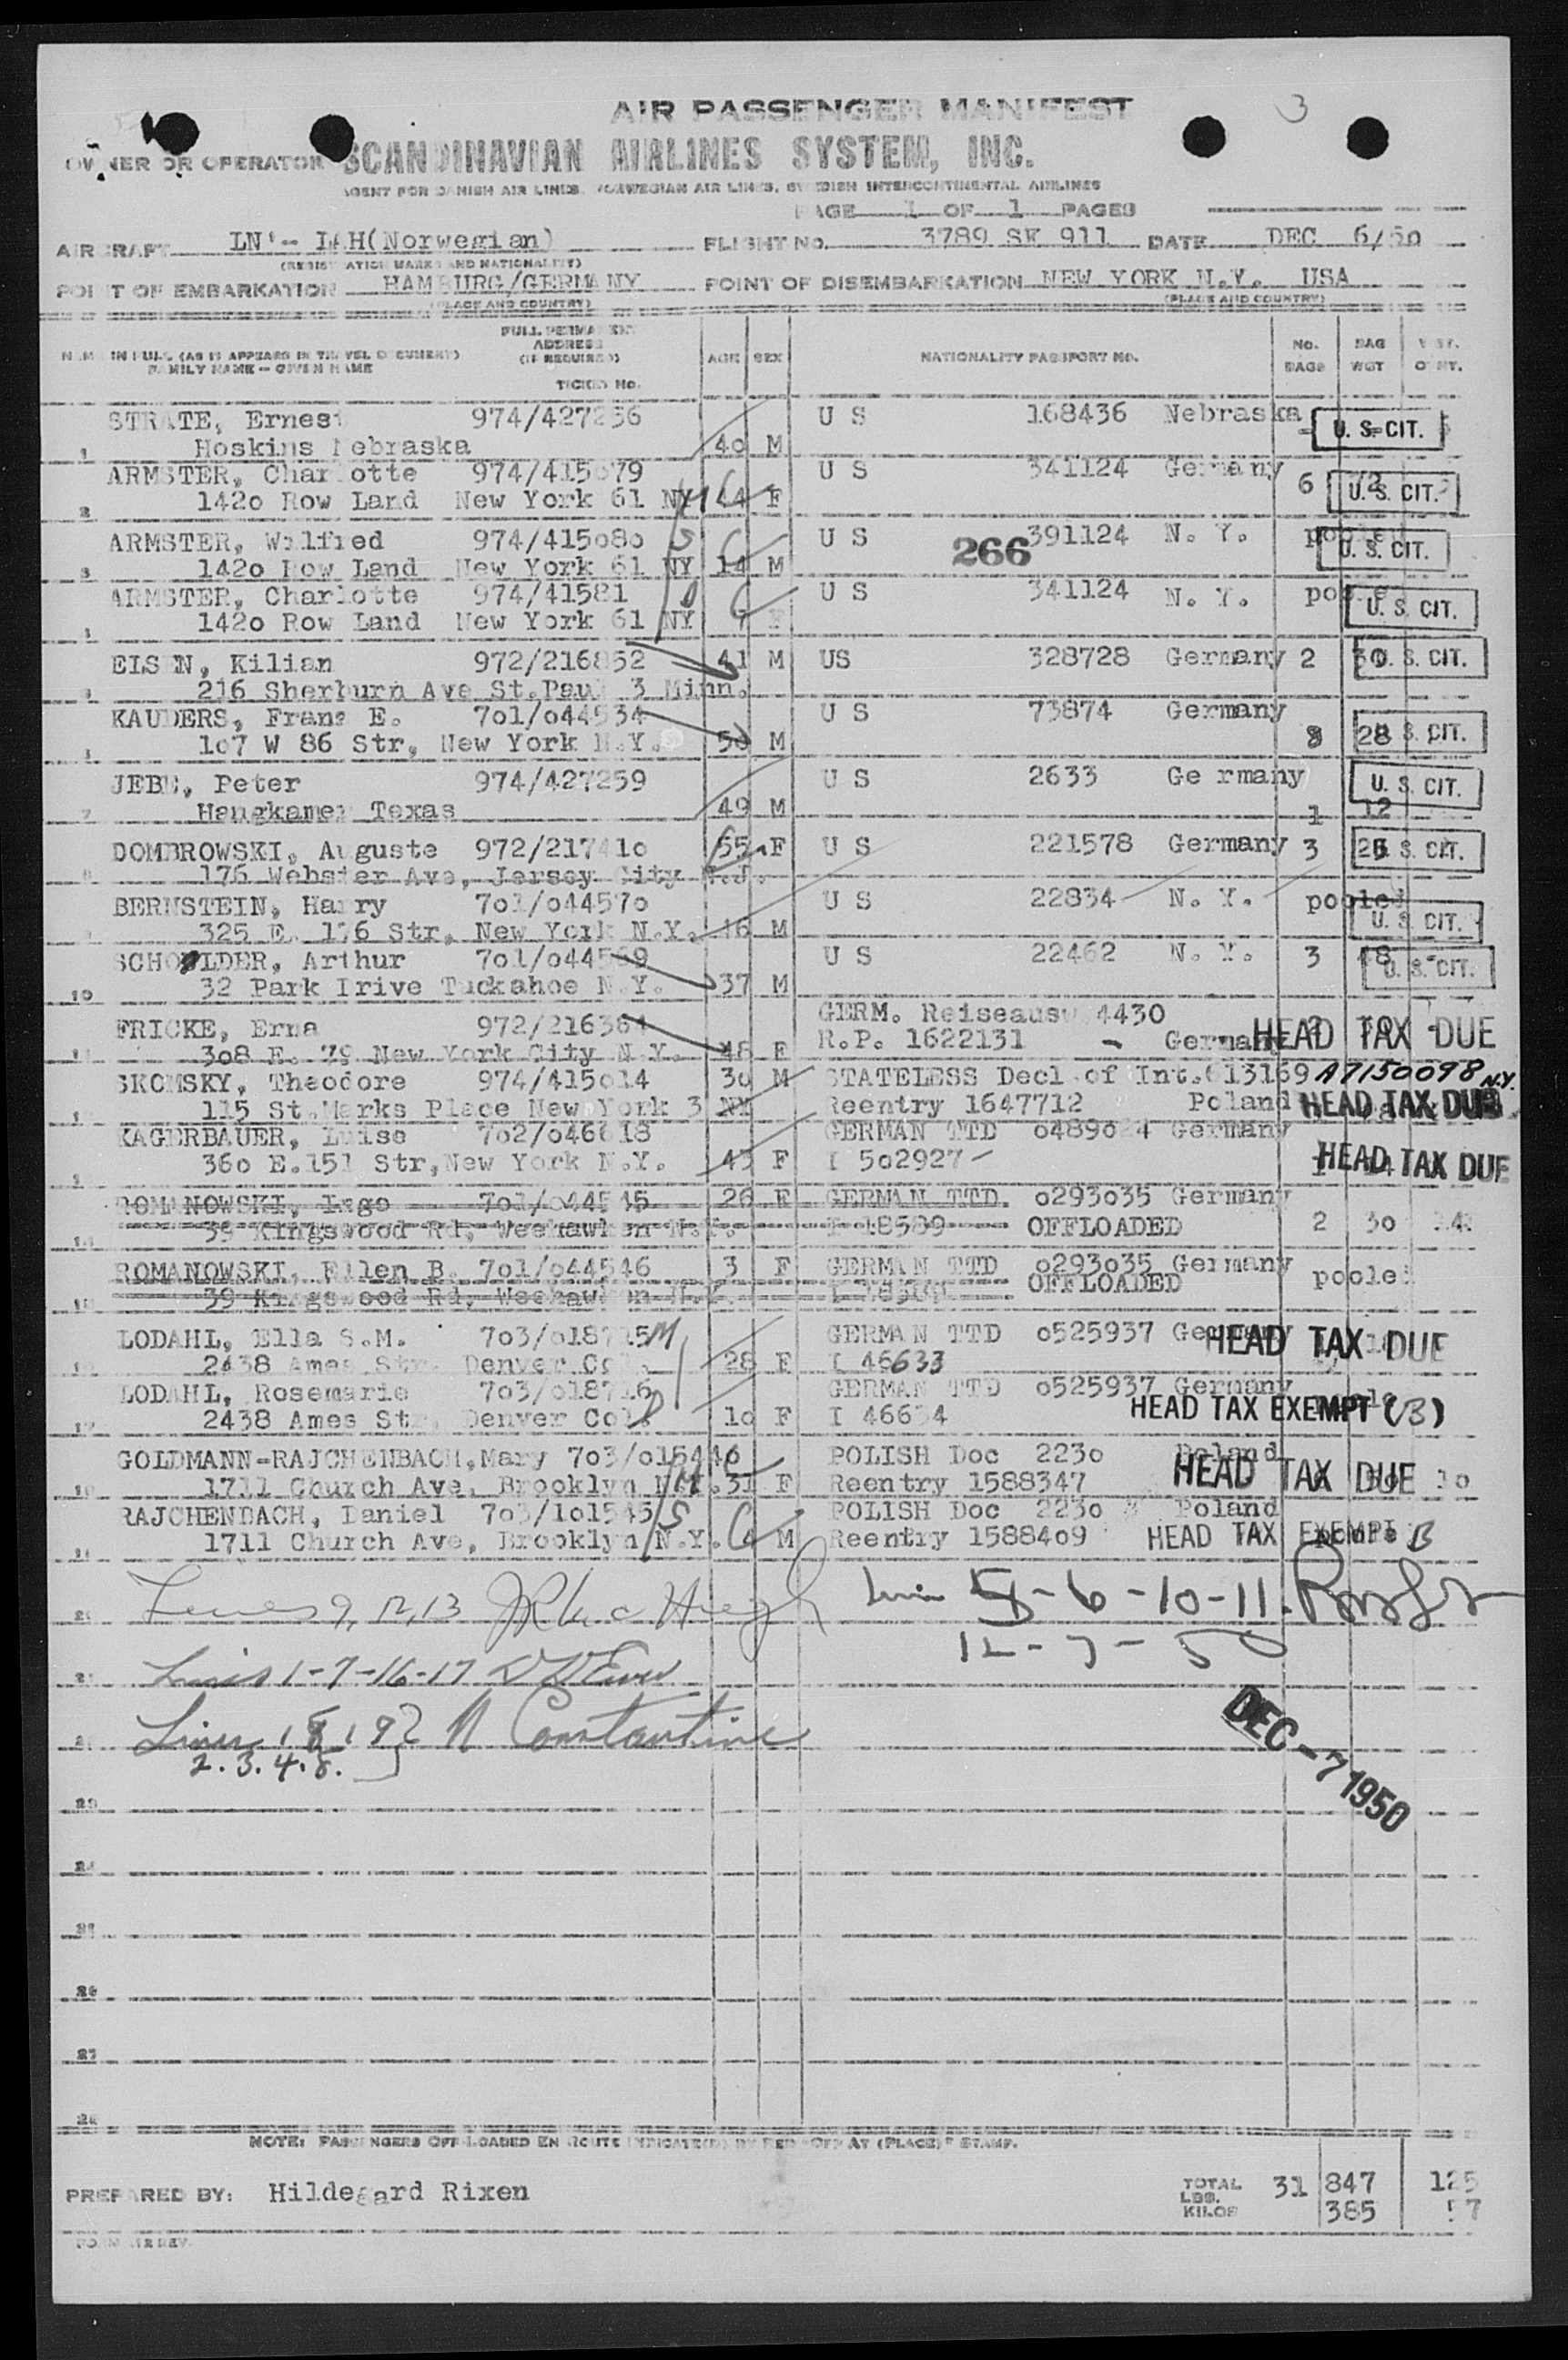 3
AIR PASSENGER MANIFEST
OWNER OR OPERATOR SCANDINAVIAN AIRLINES SYSTEM, INC.
AGENT FOR DANISH AIR LINES, NORWEGIAN AIR LINES, SWEDISH INTERCONTINENTAL AIRLINES
PAGE 1 OF 1 PAGES
AIRCRAFT LN'- (Norwegian) FLIGHT NO. 3789 SK 911 DATE DEC 6/50
(REGISTRATION MARKS AND NATIONALITY)
POINT OF EMBARKATION HAMBURG/GERMANY POINT OF DISEMBARKATION NEW YORK N.Y. USA
(PLACE AND COUNTRY) (PLACE AND COUNTRY)
NAME IN FULL (AS IT APPEARS IN TRAVEL DOCUMENT) FAMILY NAME - GIVEN NAME
FULL PERMANENT ADDRESS (IF REQUIRED) TICKET No.
AGE SEX NATIONALITY PASSPORT NO. No. BAGS BAG WGT
STRATE, Ernest 974/427256 U S 168436 Nebraska
1 Hoskins Nebraska 40 M U. S. CIT.
ARMSTER, Charlotte 974/415079 U S 341124 Germany 6
2 1420 Row Land New York 61 NY 44 F U. S. CIT.
ARMSTER, Walfried 974/415080 U S 391124 N. Y. pooled
3 1420 Row Land New York 61 NY 14 M 266 U. S. CIT.
ARMSTER, Charlotte 974/41581 U S 341124 N. Y. pooled
1420 Row Land New York 61 NY F U. S. CIT.
EISEN, Kilian 972/216852 41 M US 328728 Germany 2 30 U. S. CIT.
216 Sherburn Ave St.Paul 3 Minn.
KAUDERS, Frans E. 701/044534 U S 73874 Germany
107 W 86 Str, New York N.Y. 50 M 28 U. S. CIT.
JEBE, Peter 974/427259 U S 2633 Ge rmany
7 Texas 49 M 1 12 U. S. CIT.
DOMBROWSKI, Auguste 972/217410 55 F U S 221578 Germany 3 U. S. CIT.
8 176 Webster Ave, Jersey City N.J.
BERNSTEIN, Harry 701/044570 U S 22834 N. Y. pooled
325 E. 176 Str, New York N.Y. M U. S. CIT.
, Arthur U S 22462 N. Y. 3 U. S. CIT.
10 32 Park Drive Tuckahoe N.Y. 37 M
FRICKE, Erna 972/216364 GERM. Reiseausw 4430
11 308 E. 79 New York City N.Y. 48 F R.P. 1622131 - Germany HEAD TAX DUE
SKOMSKY, Theodore 974/415014 30 M STATELESS Decl.of Int.613169 A7150098 N.Y.
115 St.Marks Place New York 3 NY Reentry 1647712 Poland HEAD TAX DUE
KAGERBAUER, Luise 702/046618 GERMAN TTD Germany
360 E.151 Str,New York N.Y. 43 F I 502927 HEAD TAX DUE
ROMANOWSKI, Ingo 701/044545 26 F GERMAN TTD 0293035 Germany
39 Kingswood Rd, Weehawken N.Y. I 18589 OFFLOADED 2 30
ROMANOWSKI, Ellen B. 701/044546 3 F GERMAN TTD 0293035 Germany pooled
39 Kingswood Rd, Weehawken N.Y. OFFLOADED
LODAHL, Ella S.M. 703/018715 M GERMAN TTD 0525937 Germany HEAD TAX DUE
2438 Ames Str. Denver Col. 28 F I 46633
LODAHL, Rosemarie 703/018716 GERMAN TTD 0525937 Germany
17 2438 Ames Str. Denver Col. 10 F I 46634 HEAD TAX EXEMPT (B)
GOLDMANN-RAJCHENBACH,Mary 703/015446 POLISH Doc 2230 Poland
1711 Church Ave, Brooklyn N.Y. 31 F Reentry 1588347 HEAD TAX DUE 10
RAJCHENBACH, Daniel 703/101545 POLISH Doc 2230 Poland
1711 Church Ave, Brooklyn N.Y. 6 M Reentry 1588409 HEAD TAX EXEMPT B
Lines 9, 12, 13 Line 5-6-10-11.
12-7-50
Lines 1-7-16-17
Lines 18, 19 N Constantine
2. 3. 4. 8.
DEC -7 1950
23
24
25
26
27
28
NOTE: PASSENGERS OFF-LOADED EN ROUTE INDICATE(D) BY RED "OFF AT (PLACE)" STAMP.
PREPARED BY: Hildegard Rixen
TOTAL LBS. 31 847 125
KILOS 385 57